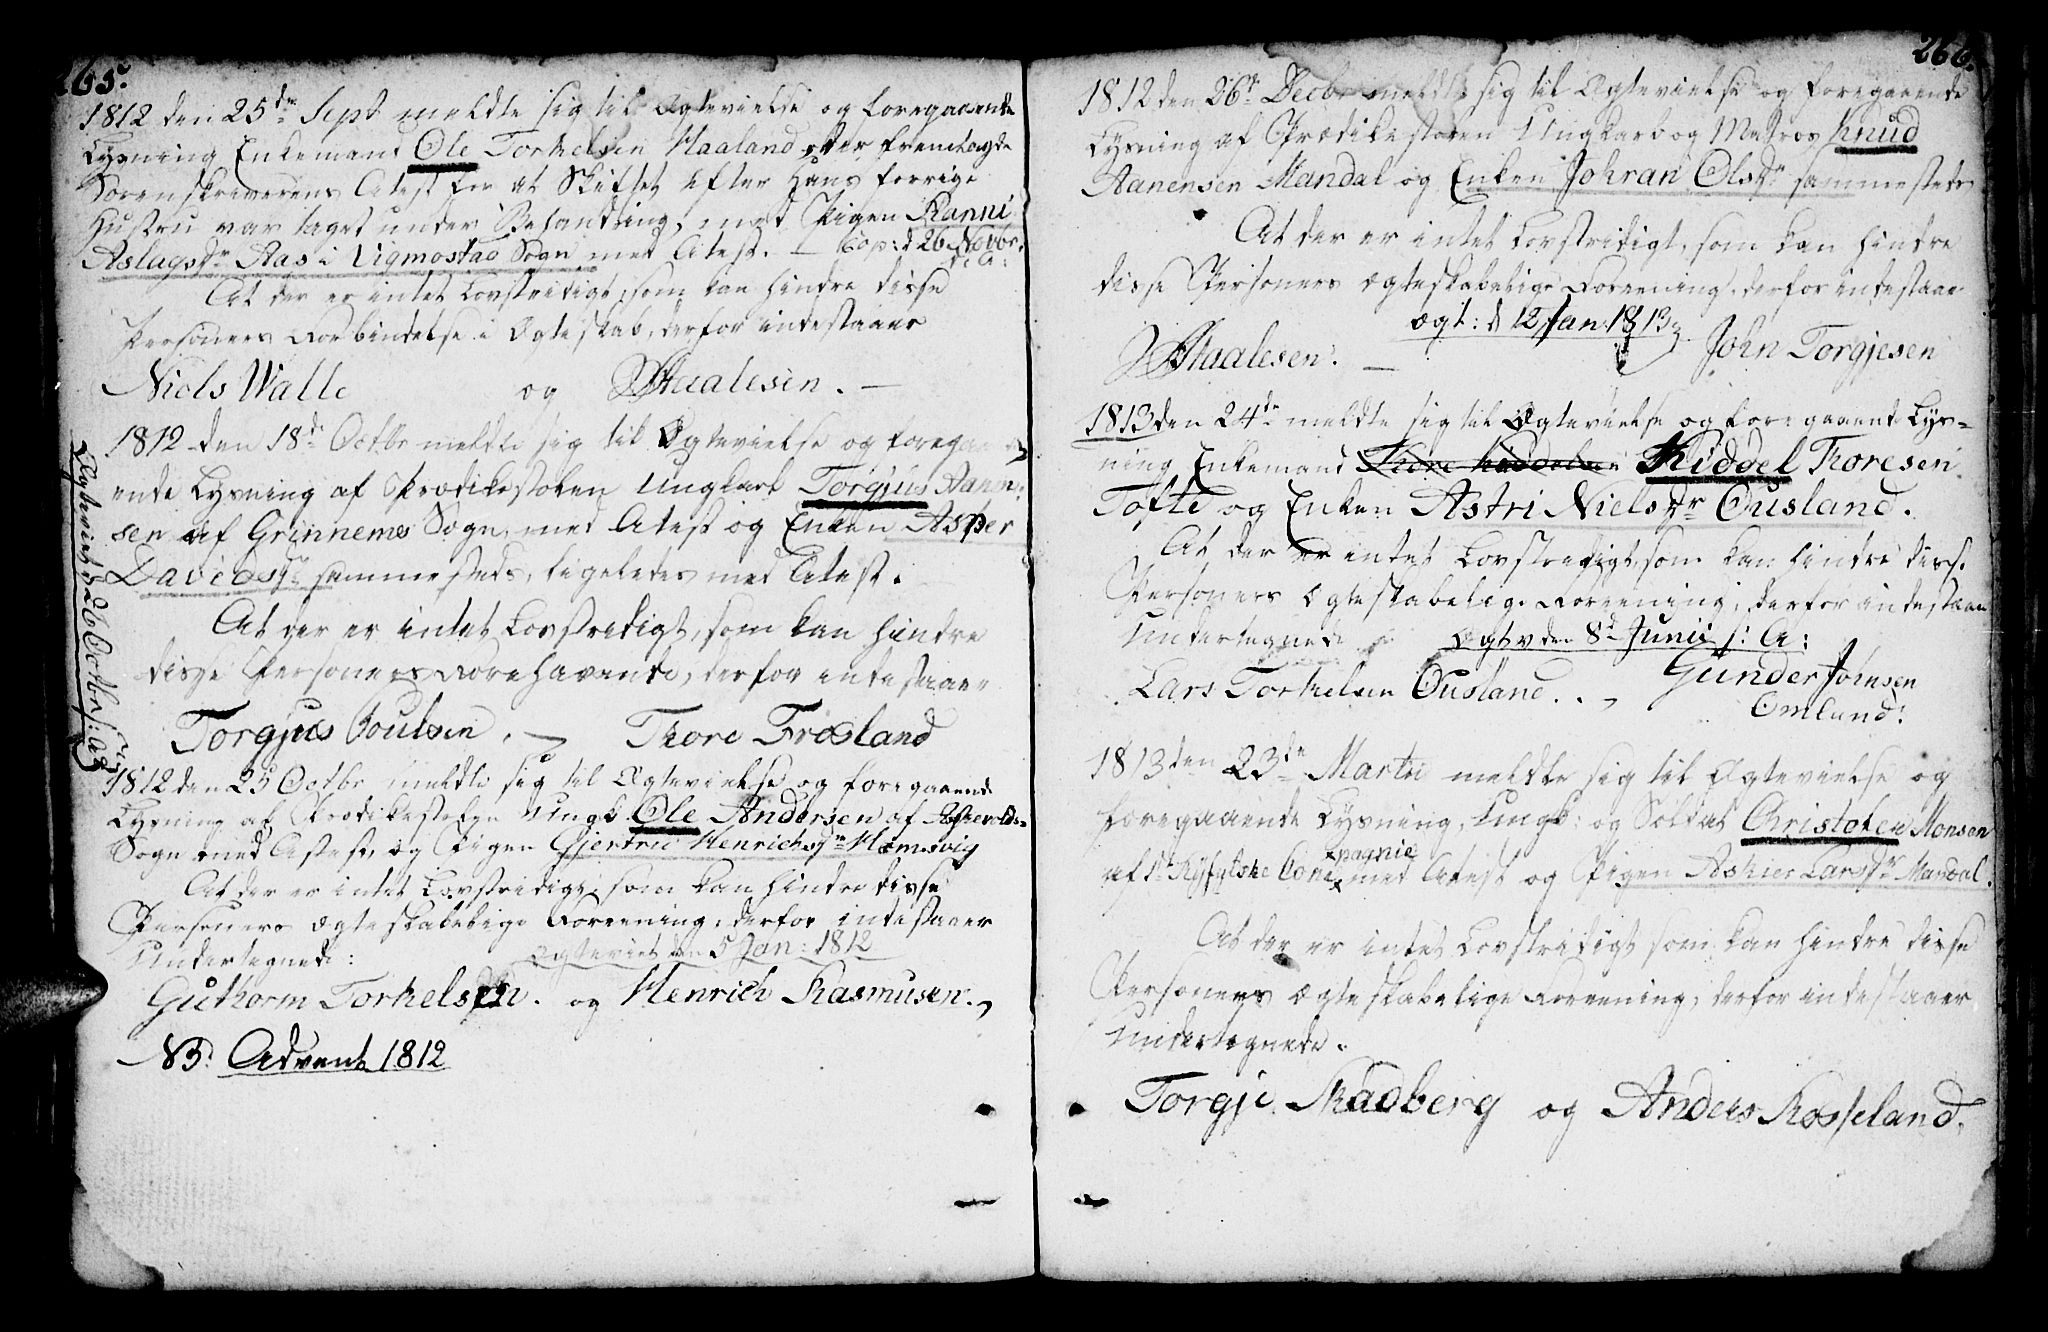 265.
1812 den 25de Sept meldte sig til Ægtevielse og foregaaende
Lysning Enkemand Ole Torkelsen Haaland efter fremlagde
Sorenskriverens Atest for at Skiftet efter Hans forrige
Hustru var taget under Behandling, med Pigen Ranni
Aslagsdr Aas i Vigmostad Sogn med Atest. — Cop: d 26 Novbr.
s: A:
At der er intet Lovstridigt, som kan hindre disse
Personers Forbindelse i Ægteskab, derfor indestaaer
Niels Valle og Staalesen. —
1812 den 18de Octbr meldte sig til Ægtevielse og foregaa
ende Lysning af Prædikestolen Ungkarl Torgjus Aanen
sen af Grinnems Sogn, med Atest og Enken Asper
Davidsdr sammesteds, ligeledes med Atest.
At der er intet Lovstridigt, som kan hindre
disse Personers Forehavende, derfor indestaaer
Torgjus Poulsen. — Thore Frøsland
Ægteviet d 26 Octbr s: A:
1812 den 25 Octbr meldte sig til Ægtevielse og foregaaende
Lysning af Prædikestolen Ungk Ole Andersen af
Sogn med Atest, og Pigen Giertrud Henrichsdr Hæmsvig
At der er intet Lovstridigt, som kan hindre disse
Personers ægteskabelige Foreening, derfor indestaaer
Undertegnede: Ægteviet den 5 Jan: 1812
Guthorm Torkelsen. og Henrich Rasmusen.
NB. Advent 1812
266.
1812 den 26de Decbr meldte sig til Ægtevielse og foregaaende
Lysning af Prædikestolen Ungkarl og Matros Knud
Aanensen Mandal og Enken Johran Olsdr sammesteds
At der er intet Lovstridigt, som kan hindre
disse Personers ægteskabelige Foreening, derfor indestaaer
ægt: d 12 Jan 1813
Staalesen. — John Torgjesen
1813 den 24de meldte sig til Ægtevielse og foregaaende Lys-
ning Enkemand Kiddel Thoresen
Tofte og Enken Astri Nielsdr Ousland.
At der er intet Lovstridigt, som kan hindre diss.
Personers ægteskabelig. Foreening, derfor indestaaer
Undertegnede Ægtv den 8de Junii s: A:
Lars Torkelsen Ousland. Gunder Johnsen
Omland:
1813 den 23de Martii meldte sig til Ægtevielse og
foregaaende Lysning, Ungk: og Soldat Christofer Monsen
af 1te Ryfylske Compagnie med Atest og Pigen Askier Larsdr Mandal.
At der er intet Lovstridigt som kan hindre disse
Personers ægteskabelige Foreening, derfor indestaaer
Undertegnede.
Torgje Skadberg og Anders Røsseland.